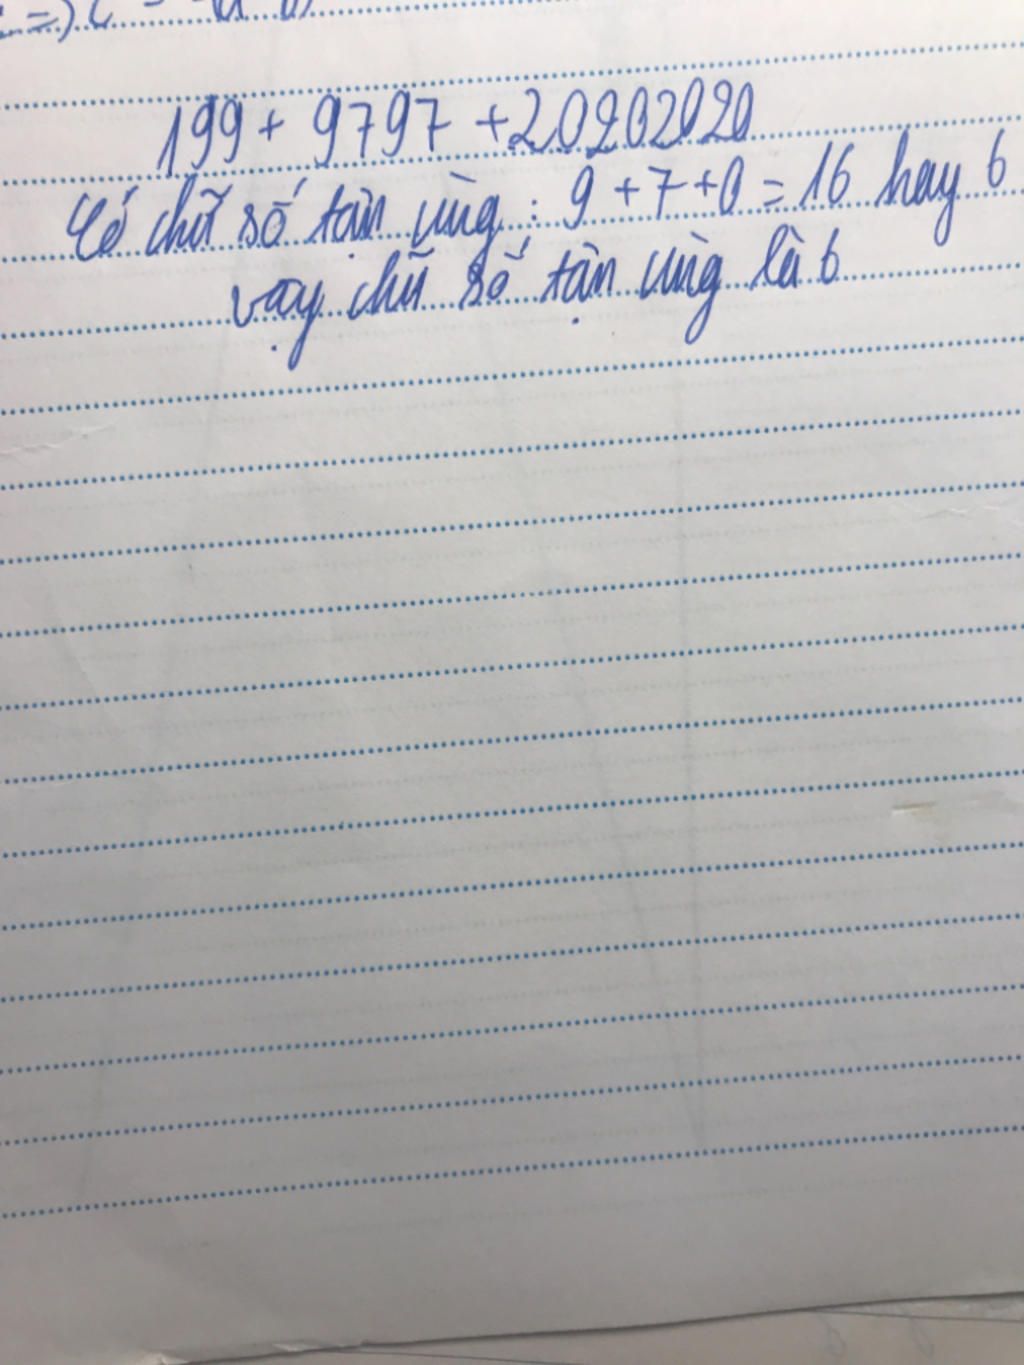 199 + 9797 + 20202020
Có chữ số tận cùng : 9 + 7 + 0 = 16 hay 6
vậy chữ số tận cùng là 6